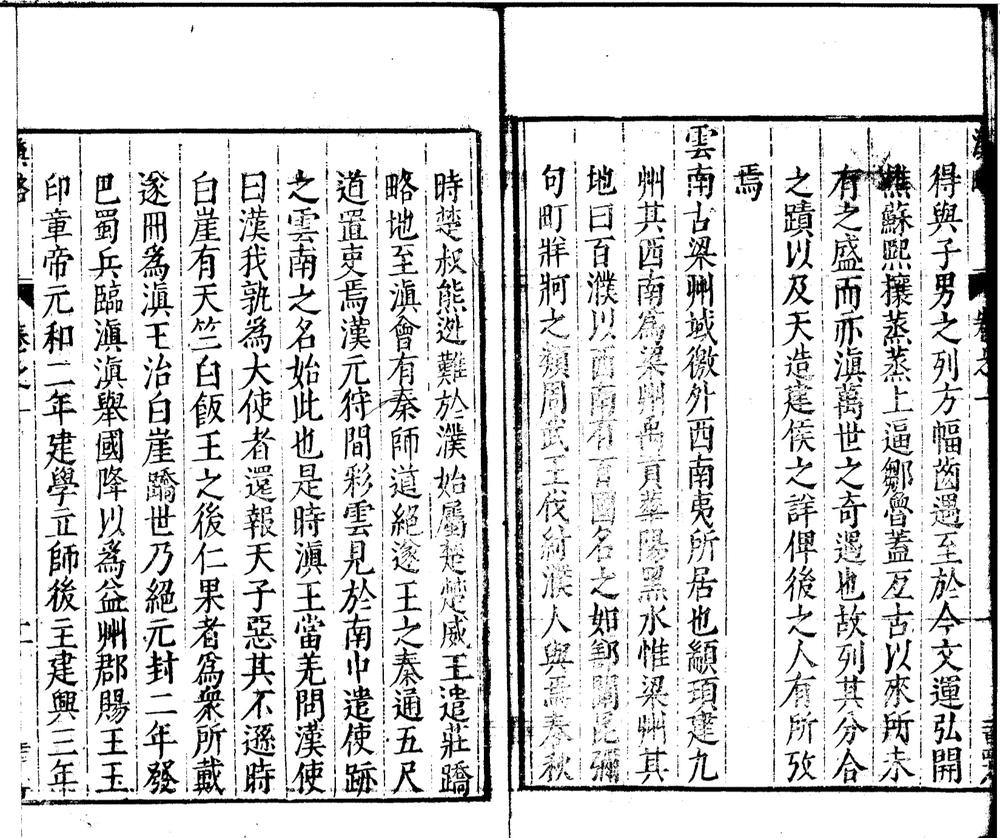 得與子男之列方幅齒遇至於今文運弘開
樵蘇熙攘蒸蒸上逼鄒魯蓋亙古以來所未
有之盛而亦滇萬世之奇遇也故列其分合
之蹟以及天造建侯之詳俾後之人有所攷
焉
雲南古梁州域徼外西南夷所居也顓頊建九
州其西南為梁州禹貢華陽黑水惟梁州其
地曰百濮以西南有百國名之如鄋闞昆彌
句町牂牁之類周武王伐紂濮人與焉春秋
時楚叔熊逃難於濮始屬楚楚威王遣莊蹻
略地至滇會有秦師道絕遂王之秦通五尺
道置吏焉漢元狩間彩雲見於南中遣使跡
之雲南之名始此也是時滇王當羌問漢使
曰漢我孰為大使者還報天子惡其不遜時
白崖有天竺白飯王之後仁果者為衆所戴
遂冊為滇王治白崖蹻世乃絕元封二年發
巴蜀兵臨滇滇舉國降以為益州郡賜王玉
印章帝元和二年建學立師後主建興三年
滇略
卷之一
二